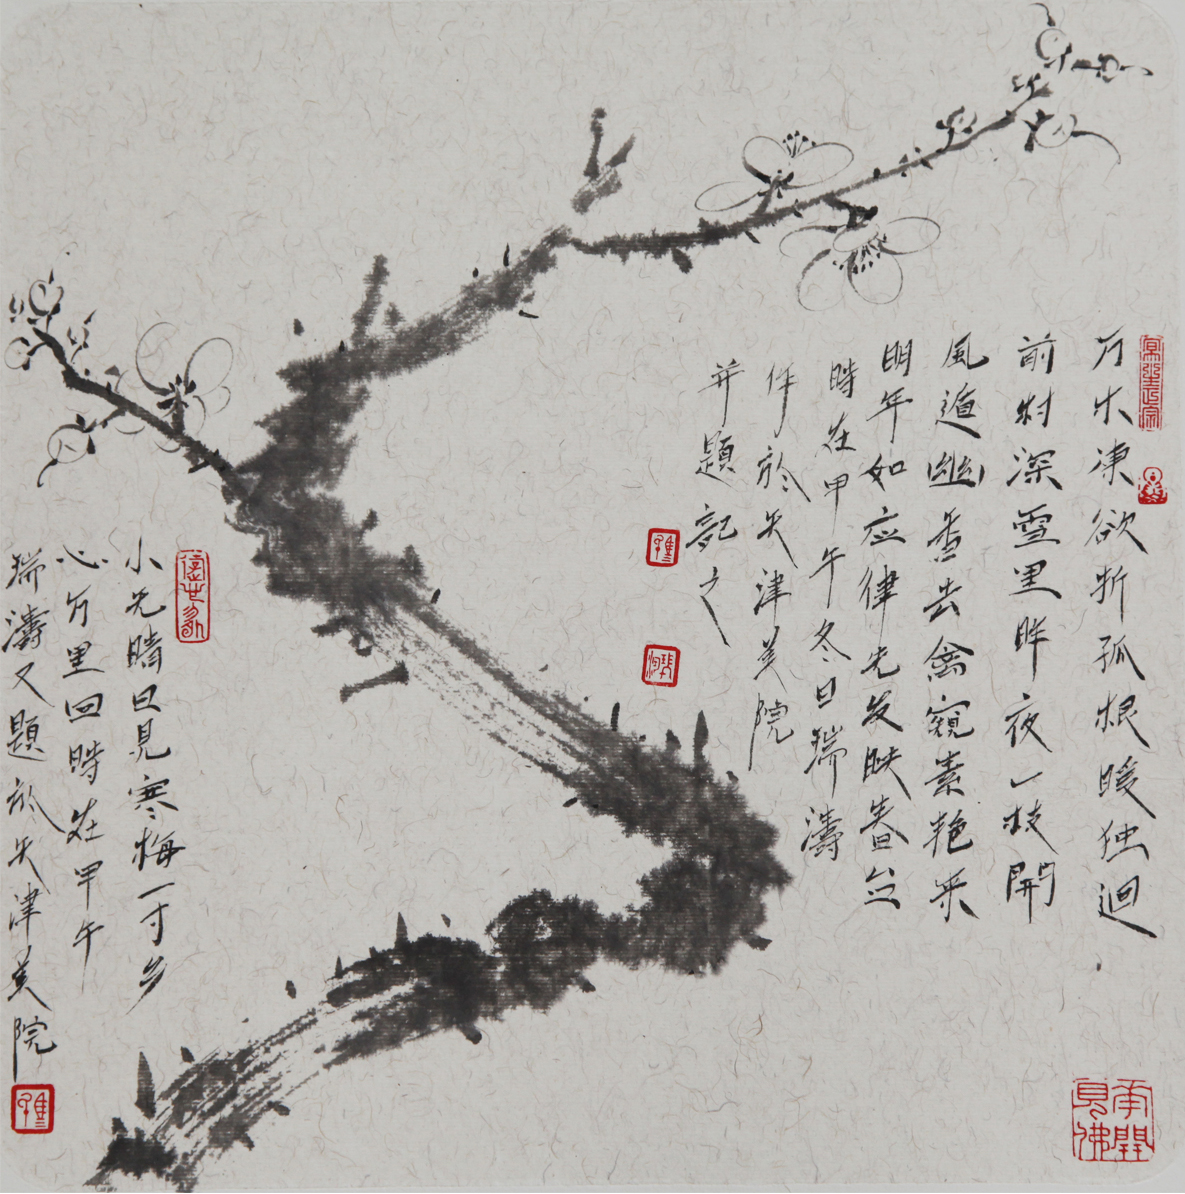 万木凍欲折孤根暖独迴
前村深雪里昨夜一枝開
風遞幽香去禽窺素艳来
明年如应律先发映春台
時在甲午冬日瑞濤
作於天津美院
并題記之
小光晴日見寒梅一寸乡
心万里回時在甲午
瑞濤又題於天津美院